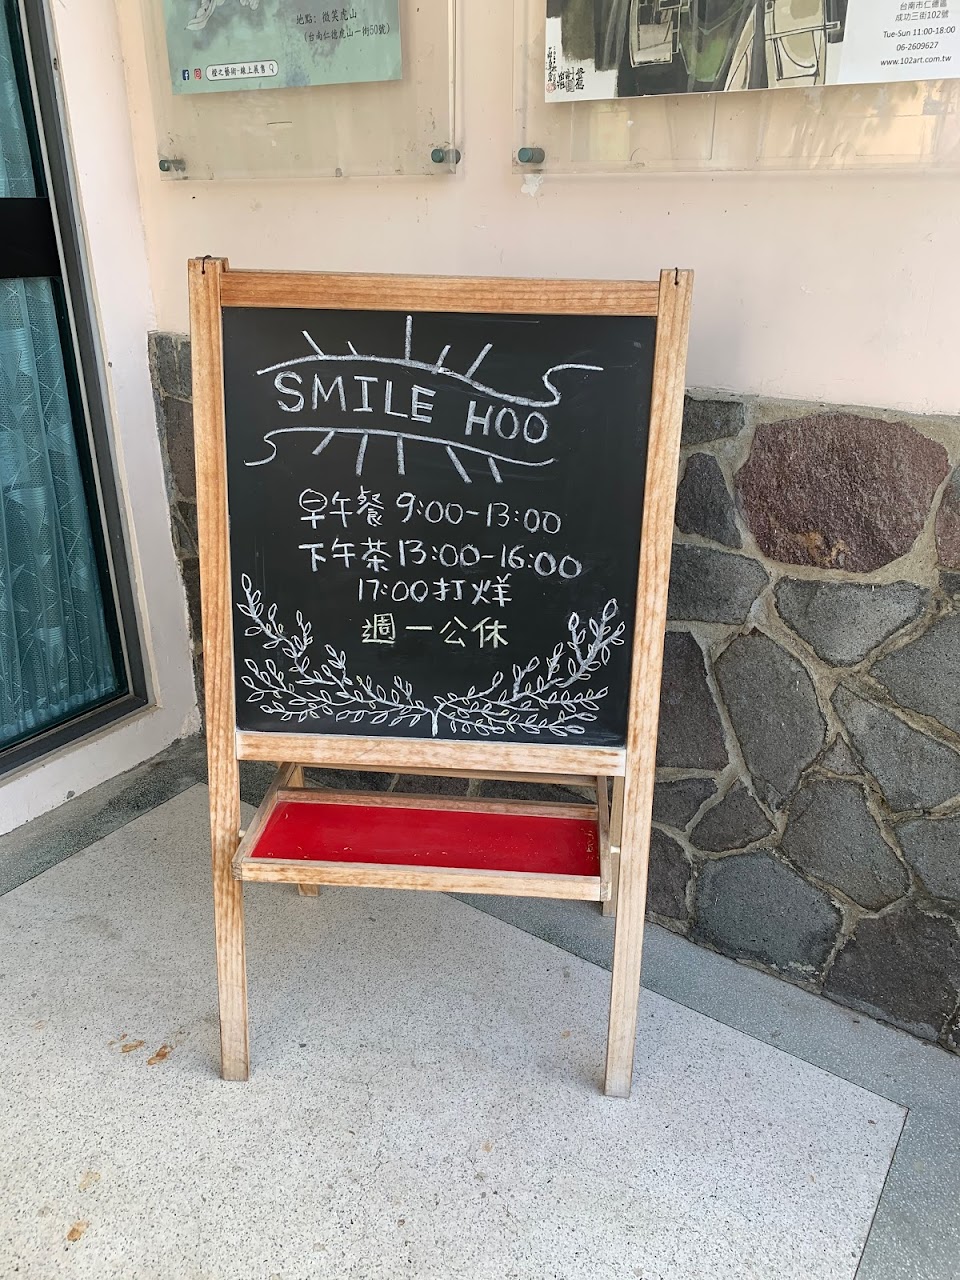 地點：微笑虎山
(台南仁德虎山一街50號)
橙之藝術-線上展售
台南市仁德區
成功三街102號
Tue-Sun 11:00-18:00
06-2609627
www.102art.com.tw
SMILE HOO
早午餐 9:00-13:00
下午茶 13:00-16:00
17:00打烊
週一公休